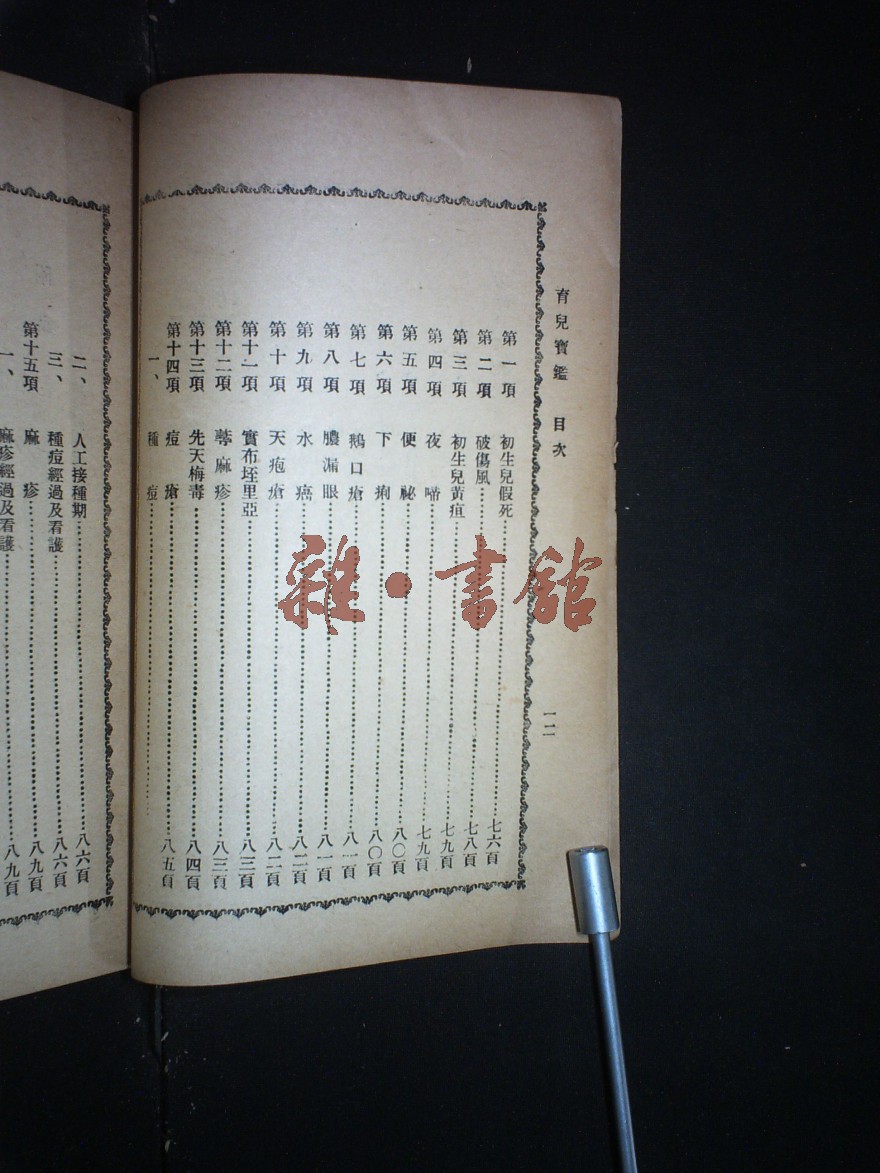 育兒寶鑑 目次
一二
第一項 初生兒假死 七六頁
第二項 破傷風 七八頁
第三項 初生兒黃疸 七九頁
第四項 夜啼 七九頁
第五項 便祕 八〇頁
第六項 下痢 八〇頁
第七項 鵝口瘡 八一頁
第八項 膿漏眼 八一頁
第九項 水癌 八二頁
第十項 天疱瘡 八二頁
第十一項 實布垤里亞 八三頁
第十二項 蕁麻疹 八三頁
第十三項 先天梅毒 八四頁
第十四項 痘瘡 八五頁
一、種痘
二、人工接種期 八六頁
三、種痘經過及看護 八六頁
第十五項 麻疹 八九頁
一、麻疹經過及看護 八九頁
雜·書館